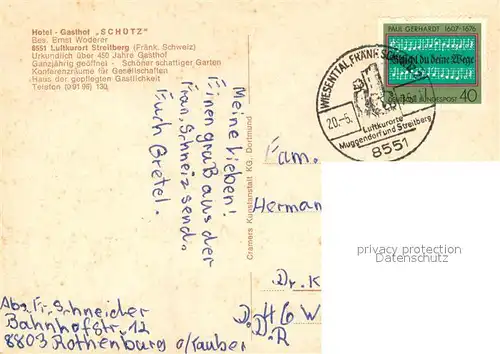 Hotel - Gasthof „SCHÜTZ"
Bes. Ernst Woderer
8551 Luftkurort Streitberg (Fränk. Schweiz)
Urkundlich über 450 Jahre Gasthof
Ganzjährig geöffnet - Schöner schattiger Garten
Konferenzräume für Gesellschaften
Haus der gepflegten Gastlichkeit
Telefon (09196) 130
Meine Lieben!
Einen Gruß aus der
Frän. Schweiz send.
Euch Gretel.
Cramers Kunstanstalt KG, Dortmund
PAUL GERHARDT 1607-1676
Befiehl du deine Wege
DEUTSCHE BUNDESPOST 40
WIESENTTAL FRÄNK SCHWEIZ
20.-5.
Luftkurorte
Muggendorf und Streitberg
8551
Fam.
Herman
Dr. K
D. H6 W
D.D.R
privacy protection
Abs. Fr. Schneider
Bahnhofstr. 12
8803 Rothenburg o/Tauber